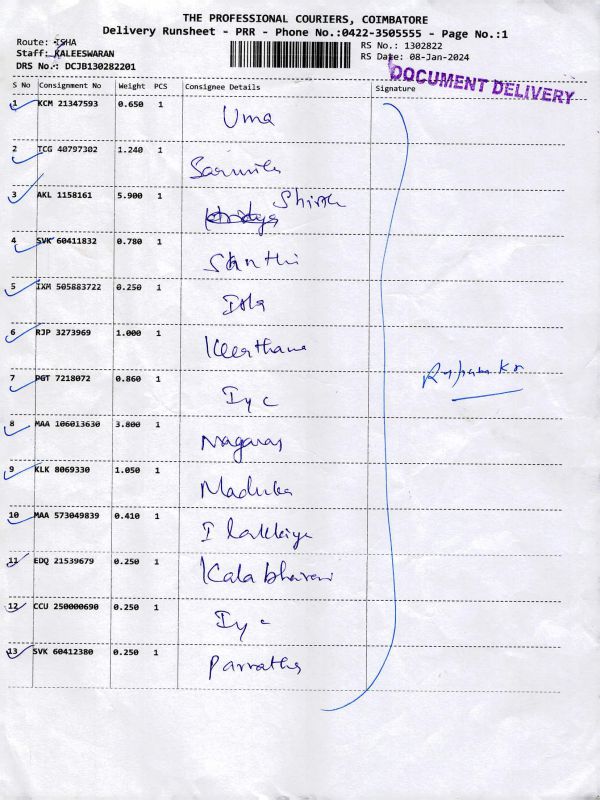 THE PROFESSIONAL COURIERS, COIMBATORE
Delivery Runsheet - PRR - Phone No.:0422-3505555 - Page No.:1
Route: ISHA
Staff: KALEESWARAN
DRS No.: DCJB130282201
RS No.: 1302822
RS Date: 08-Jan-2024
DOCUMENT DELIVERY
S No Consignment No Weight PCS Consignee Details Signature
1 KCM 21347593 0.650 1 Uma
2 TCG 40797302 1.240 1
3 AKL 1158161 5.900 1
4 SVK 60411832 0.780 1 Santhi
5 IXM 505883722 0.250 1
6 RJP 3273969 1.000 1 Keerthana
7 PGT 7218072 0.860 1 Iyc
8 MAA 106013630 3.800 1 Nagaraj
9 KLK 8069330 1.050 1
10 MAA 573049839 0.410 1 Ilakkiya
11 EDQ 21539679 0.250 1 Kalabhairavi
12 CCU 250000690 0.250 1 Iyc
13 SVK 60412380 0.250 1 Parvatha